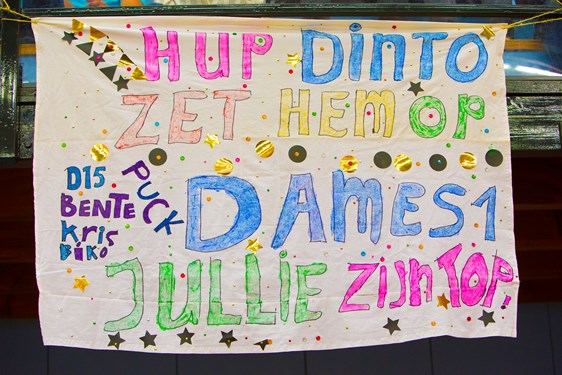 HUP DINTO
ZET HEM OP
DAMES 1
JULLIE ZIJN TOP!
D15
BENTE
PUCK
KRIS
BIKO